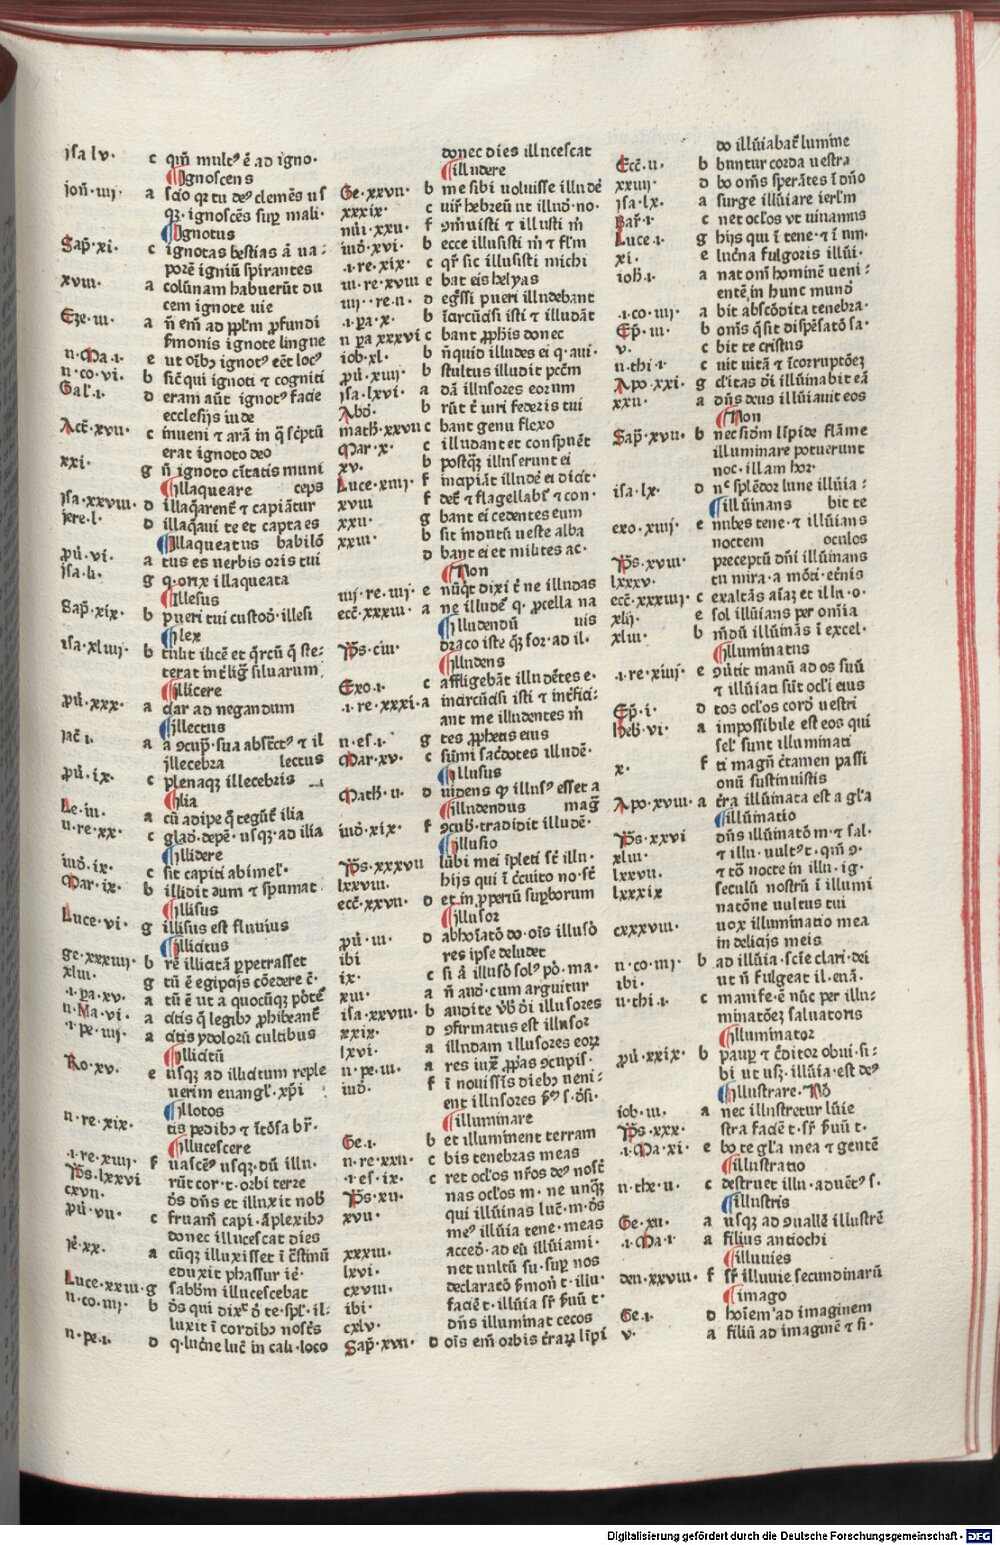 jsa lv· c qm̄ mult⁹ ē ad igno·
Ignoscens
jon̄·iiij· a scio qꝛ tu de⁹ clemēs ⁊ us
qꝫ·ignoscēs suꝑ mali·
Ignotus
Sap̄·xi· c ignotas bestias ā ua-
porē igniū spirantes
xviii· a colūnam habuerūt du
cem ignote uie
Eze·iii· a n̄ em̄ ad pp̄lm ꝓfundi
sermonis ignote lingue
ii·Ma·i· e ut oībꝫ ignot⁹ eēt loc⁹
ii·co·vi· b sic̄ qui ignoti ⁊ cogniti
Gal̄·i· d eram aūt ignot⁹ facie
ecclesijs iude
Act̄·xvii· c inueni ⁊ arā in q̄ sc̄ptū
erat ignoto deo
xxi· g n̄ ignoto ciūtatis muni
Illaqueare ceps
jsa·xxviii· d illaq̄arent̄ ⁊ capiātur
jere·l· d illaq̄aui te et capta es
Illaqueatus babilō
pū·vi· a tus es uerbis oris tui
jsa·li· g q·orix illaqueata
Illesus
Sap̄·xix· b pueri tui custod̄·illesi
Ilex
isa·xliiij· b tulit ilicē et q̄rcū q̄ ste-
terat int̄ liḡ siluarum
Illicere
pū·xxx· a clar ad negandum
Illectus
jac̄ i· a a ꝯcup̄·sua abst̄ct⁹ ⁊ il
jllecebra lectus
pū·ix· c plenaqꝫ illecebris
Ilia
Le·iii· a cū adipe q̄ tegūt̄ ilia
ii·re·xx· c glad̄·depē·usqꝫ·ad ilia
Illidere
iud̄·ix· c sit capiti abimel̄·
Mar·ix· b illidit eum ⁊ spumat
Illisus
Luce·vi· g illisus est fluuius
Illicitus
ge·xxxiiij· b rē illicitā ꝑpetrasset
xliii· g tū ē egipcijs cōedere c̄·
·i·pa·xv· a tū ē ut a quocūqꝫ pōte
ii·Ma·vi· a citis q̄ legibꝫ ꝓhibeant̄
·i·pe·iiij· a citis ydolorū cultibus
Illicitū
Ro·xv· e usqꝫ ad illicitum reple
uerim euangl̄·xp̄i
Illotos
ii·re·xix· tis pedibꝫ ⁊ ītōsa br̄·
Illucescere
·i·re·xiiij· f uascē⁹ usqꝫ·dū illu·
Ps̄·lxxvi rūt cor·t·orbi terre
cxvii· d̄s dn̄s et illuxit nob̄
pū·vii· c fruam̄ capi·āplexibꝫ
donec illucescat dies
jē·xx· a cūqꝫ illuxisset ī c̄stinū
eduxit phassur iē·
Luce·xxiii·g sabb̄m illucescebat
ii·co·iiij· b d̄s qui dixᶜ d̄ te·spl̄·il-
luxit ī cordibꝫ nost̄s
ii·pe·i· d q·luc̄ne luc̄ in cali·loco
donec dies illucescat
illudere
Ge·xxvii· b me sibi uoluisse illudē
xxxix· c uir̄ hebreū ut illud̄·no·
nūi·xxii· f ꝯmuisti ⁊ illusti m̄
iud̄·xvi· b ecce illusisti m̄ ⁊ fl̄m
·i·re·xix· c qr̄ sic illusisti michi
iii·re·xviii e bat eis helyas
iiij··re·ii· d egr̄ssi pueri illudebant
·i·pa·x· b īcircūcisi isti ⁊ illudāt
ii pa xxxvi c bant ꝓphis donec
iob·xl· b nūquid illudes ei q·aui·
pū·xiiij· b stultus illudit pcc̄m
jsa·lxvi· a dā illusores eorum
Abd̄· b rūt ē uiri federis tui
math̄·xxvii c bant genu flexo
Mar·x· c illudant et conspuēt
xv· b postqꝫ illuserunt ei
Luce·xiiij· f incipiāt illudē ei dicēt·
xviii f det̄ ⁊ flagellabt̄ ⁊ con·
xxii· g bant ei cedentes eum
xxiii· b sit indutū ueste alba
d bant ei et milites ac·
Non
iiij·re·iiij· e nūqt̄ dixi t̄ ne illudas
ecc̄·xxxiii· a ne illudē q·ꝓcella na
Illudendū uis
Ps̄·ciii· draco iste qꝫ for·ad il·
Illudens
Exo·i· c affligebāt illudētes e·
·i·re·xxxi·a incircūcisi isti ⁊ int̄fici-
ant me illudentes m̄
ii·es·i· g tes ꝓphetas eius
Mar·xv· c sūmi sac̄dotes illudē·
Illusus
Math̄·ii· d uidens ꝙ illus⁹ esset a
Illudendus mag̃
iud̄·xix· f ꝯcub̄·tradidit illudē·
Illusio
Ps̄·xxxvii lūbi mei īpleti st̄ illu·
lxxviii· hijs qui ī c̄cuito no·st̄
ecc̄·xxvii· d et in ꝓpertū suꝑborum
Illusor
pū·iii· d abhoīatō do·ois illusō
ibi res ipse deludet
ix· c si ā illusō sol⁹ pō·ma·
xiii· a n̄ aud̄·cum arguitur
isa·xxviii· b audite v̄b d̄i illusores
xxix· d ꝯfirmatus est illusor
lxvi· a illudam illusores eoꝝ
ii·pe·iii· a res iux̄ ꝓpas ꝯcupis·
iud̄· f ī nouissīs diebꝫ ueni-
ent illusores ·s·d̄si·
illuminare
Ge·i· b et illuminent terram
ii·re·xxii· c bis tenebras meas
·i·es·ix· c ret ocl̄os nr̄os de⁹ nost̄
Ps̄·xii· nas ocl̄os m·ne unqꝫ
xvii· qui illūinas luc̄·m·d̄s
me⁹ illūia tene·meas
xxxiii· acced̄·ad eū illūiami·
lxvi· net uultū su·suꝑ nos
cxviii· declaratō s̄mon̄ t·illu·
ibi· faciē t·illūia sr̄ s̄uū t·
cxlv· dn̄s illuminat cecos
Sap̄·xvii· d ois em̄ orbis t̄raꝝ līpi
do illūiabat̄ lumine
Ecc̄·ii· b buntur corda uestra
xxiiij· d bo om̄s sperātes ī dn̄o
jsa·lx· a surge illūiare ierl̄m
Bar̄·i· c net ocl̄os vt uiuamus
Luce·i· g hijs qui ī tene·⁊ ī um·
xi· e luc̄na fulgoris illūi·
ioh̄·i· a nat om̄ hominē ueni-
entē in hunc mund̄
·i·co·iiij· a bit abscōdita tenebra·
Ep̄·iii· b om̄s q̄ sit dispēsatō sa·
v· c bit te cristus
ii·thi·i· c uit uitā ⁊ īcorruptōeꝫ
Apo·xxi· g cl̄itas d̄i illūinabit eā
xxii· a dn̄s deus illūiauit eos
Non
Sap̄·xvii· b nec sidm̄ līpide flāme
illuminare potuerunt
noc·illam hor·
isa·lx· d nᶜ splēdor lune illūia-
illūinans bit te
exo·xiiij· e nubes tene·⁊ illūians
noctem oculos
Ps̄·xviii· preceptū dn̄i illūinans
lxxxv· tu mira·a mōti·et̄nis
ecc̄·xxxiiij· c exaltās aīaꝫ et illu·o·
xliij· e sol illūians per om̄ia
xliii· b mūdū illūinās ī excel·
Illuminatus
·i·re·xiiij· e ꝯūtit manū ad os suū
⁊ illūiati sūt ocl̄i eius
Ep̄·i· d tos ocl̄os cord̄ uestri
Heb̄·vi· a impossibile est eos qui
sel̄ sunt illuminati
x· f ti magn̄ c̄tamen passi
onū sustinuistis
Apo·xviii· a t̄ra illūinata est a gl̄a
Illūinatio
Ps̄·xxvi dn̄s illūinatō m·⁊ sal·
xliii· ⁊ illu·uult⁹ t·qm̄ ꝯ·
lxxvii· ⁊ tō nocte in illu·ig·
lxxxix seculū nostrū ī illumi
natōne uultus tui
cxxxviii· nox illuminatio mea
in delicijs meis
ii·co·iiij· b ad illūia·scīe clari·dei
ibi· ut n̄ fulgeat il·euā·
ii·thi·i· c manife·ē nūc per illu-
minatōeꝫ saluatoris
Illuminator
pū·xxix· b pauꝑ ⁊ c̄ditor obui·si-
bi ut usꝫ·illūia·est de⁹
Illustrare·No
iob·iii· a nec illustretur lūie
Ps̄·xxx· stra faciē t·sr̄ s̄uū t·
·i·Ma·xi· e bo te gl̄a mea ⁊ gentē
Illustratio
ii·the·ii· c destruet illu·aduēt⁹ s·
Illustris
Ge·xii· a usqꝫ ad ꝯuallē illustrē
·i·Ma·i· a filius antiochi
illuuies
deu·xxviii· f sr̄ illuuie secundinarū
imago
Ge·i· d hoīem ad imaginem
v· a filiū ad imaginē ⁊ si·
Digitalisierung gefördert durch die Deutsche Forschungsgemeinschaft - DFG